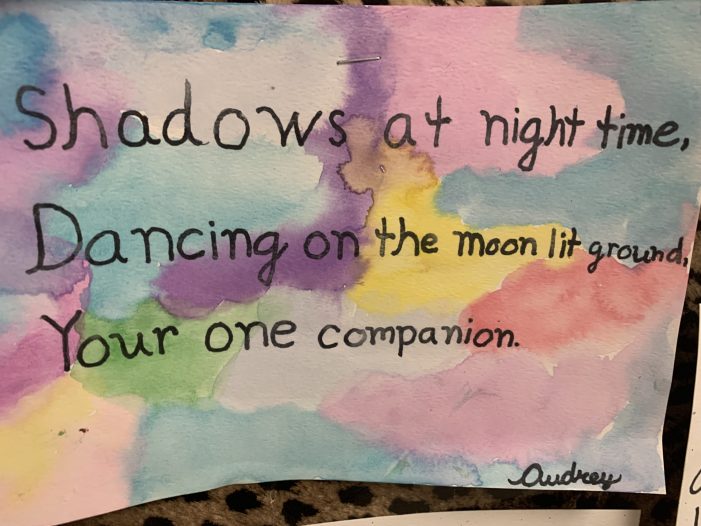 Shadows at night time,
Dancing on the moon lit ground,
Your one companion.
Audrey